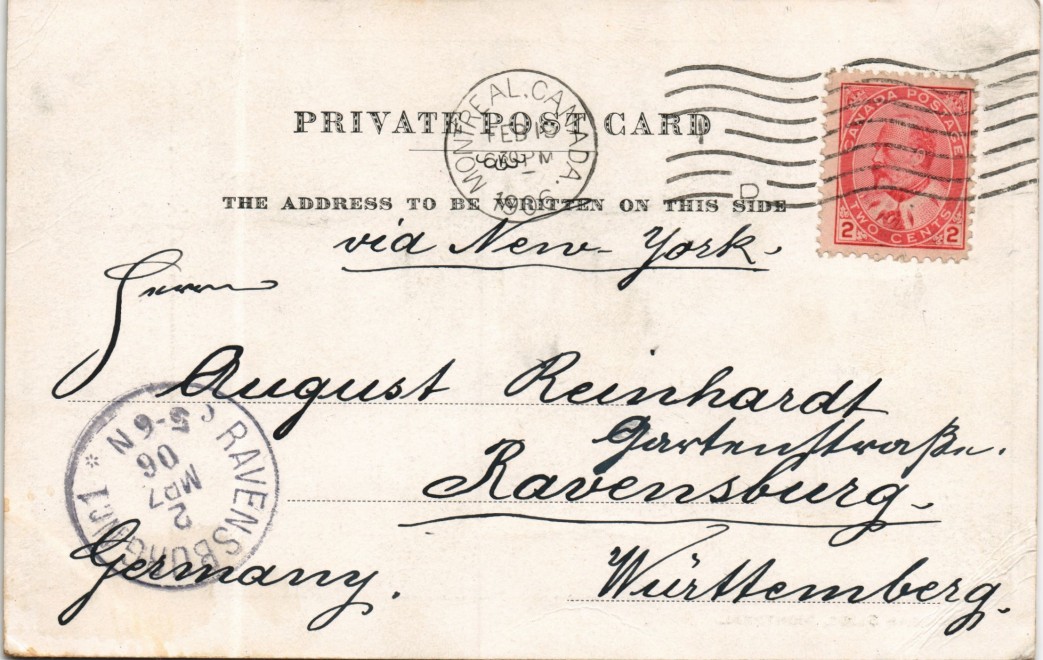 PRIVATE POST CARD
MONTREAL. CANADA.
FEB
PM
1906
D
CANADA POSTAGE
2 TWO CENTS 2
THE ADDRESS TO BE WRITTEN ON THIS SIDE
via New-York.
Herrn
August Reinhardt
Gartenstraße.
Ravensburg.
Württemberg.
Germany.
RAVENSBURG
5-6 N
06
MRZ
2